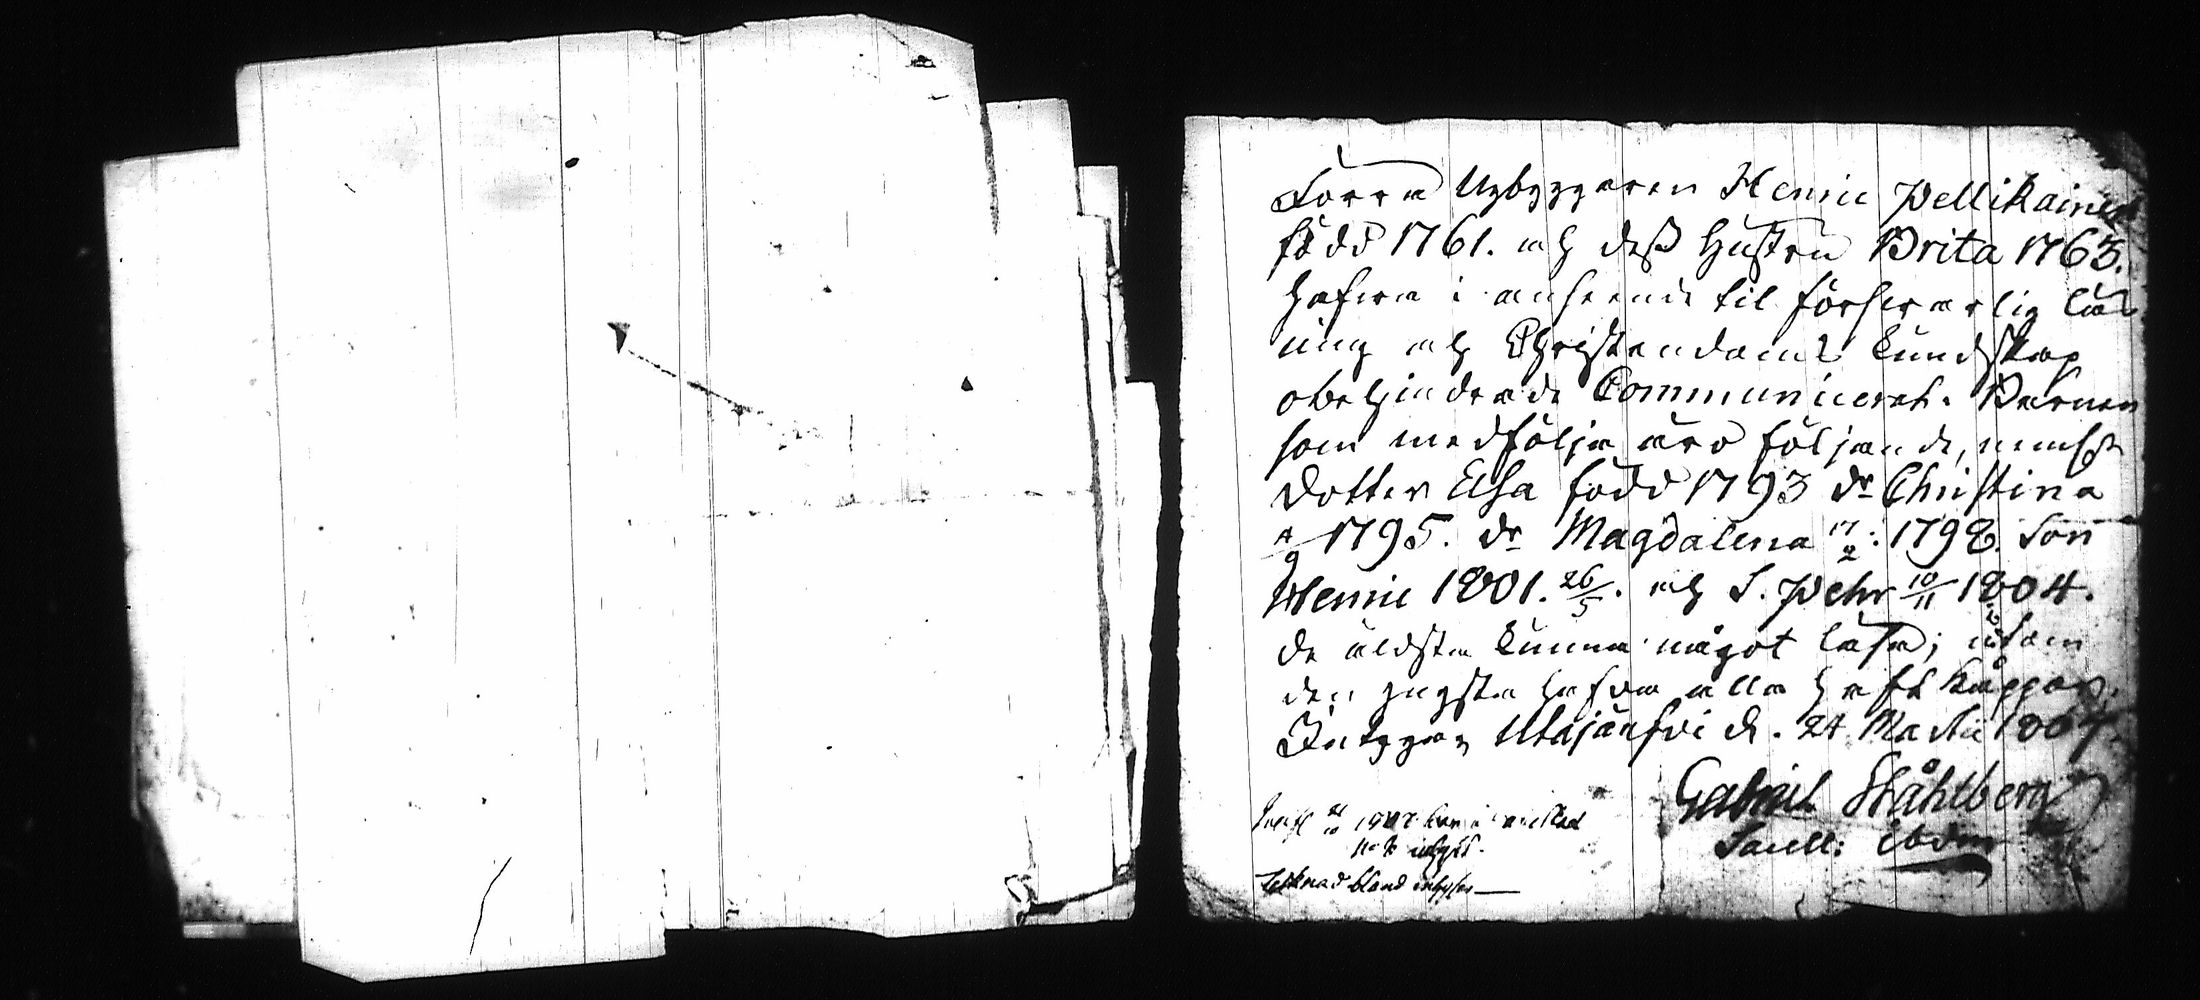 Förra Nybyggaren Henric Pellikainen
född 1761. och deß Hustru Brita 1763.
hafwa i anseende til förswarlig läs
ning och Christendoms kundskap
obehindrade Communicerat. Barnen
som medfölja äro följande, nemligen
Dotter Elsa född 1793 dr Christina
4/9 1795. dr Magdalena 17/2: 1798. Son
Henric 1801. 26/5. och S. Pehr 10/11 1804.
de äldsta kunna något läsa; utom
den yngsta hafva alla haft kåppor.
Intygar Utajärfvi d. 24 Martii 1807.
Gabriel Ståhlberg
Sacell: ibdm
bland inhyses